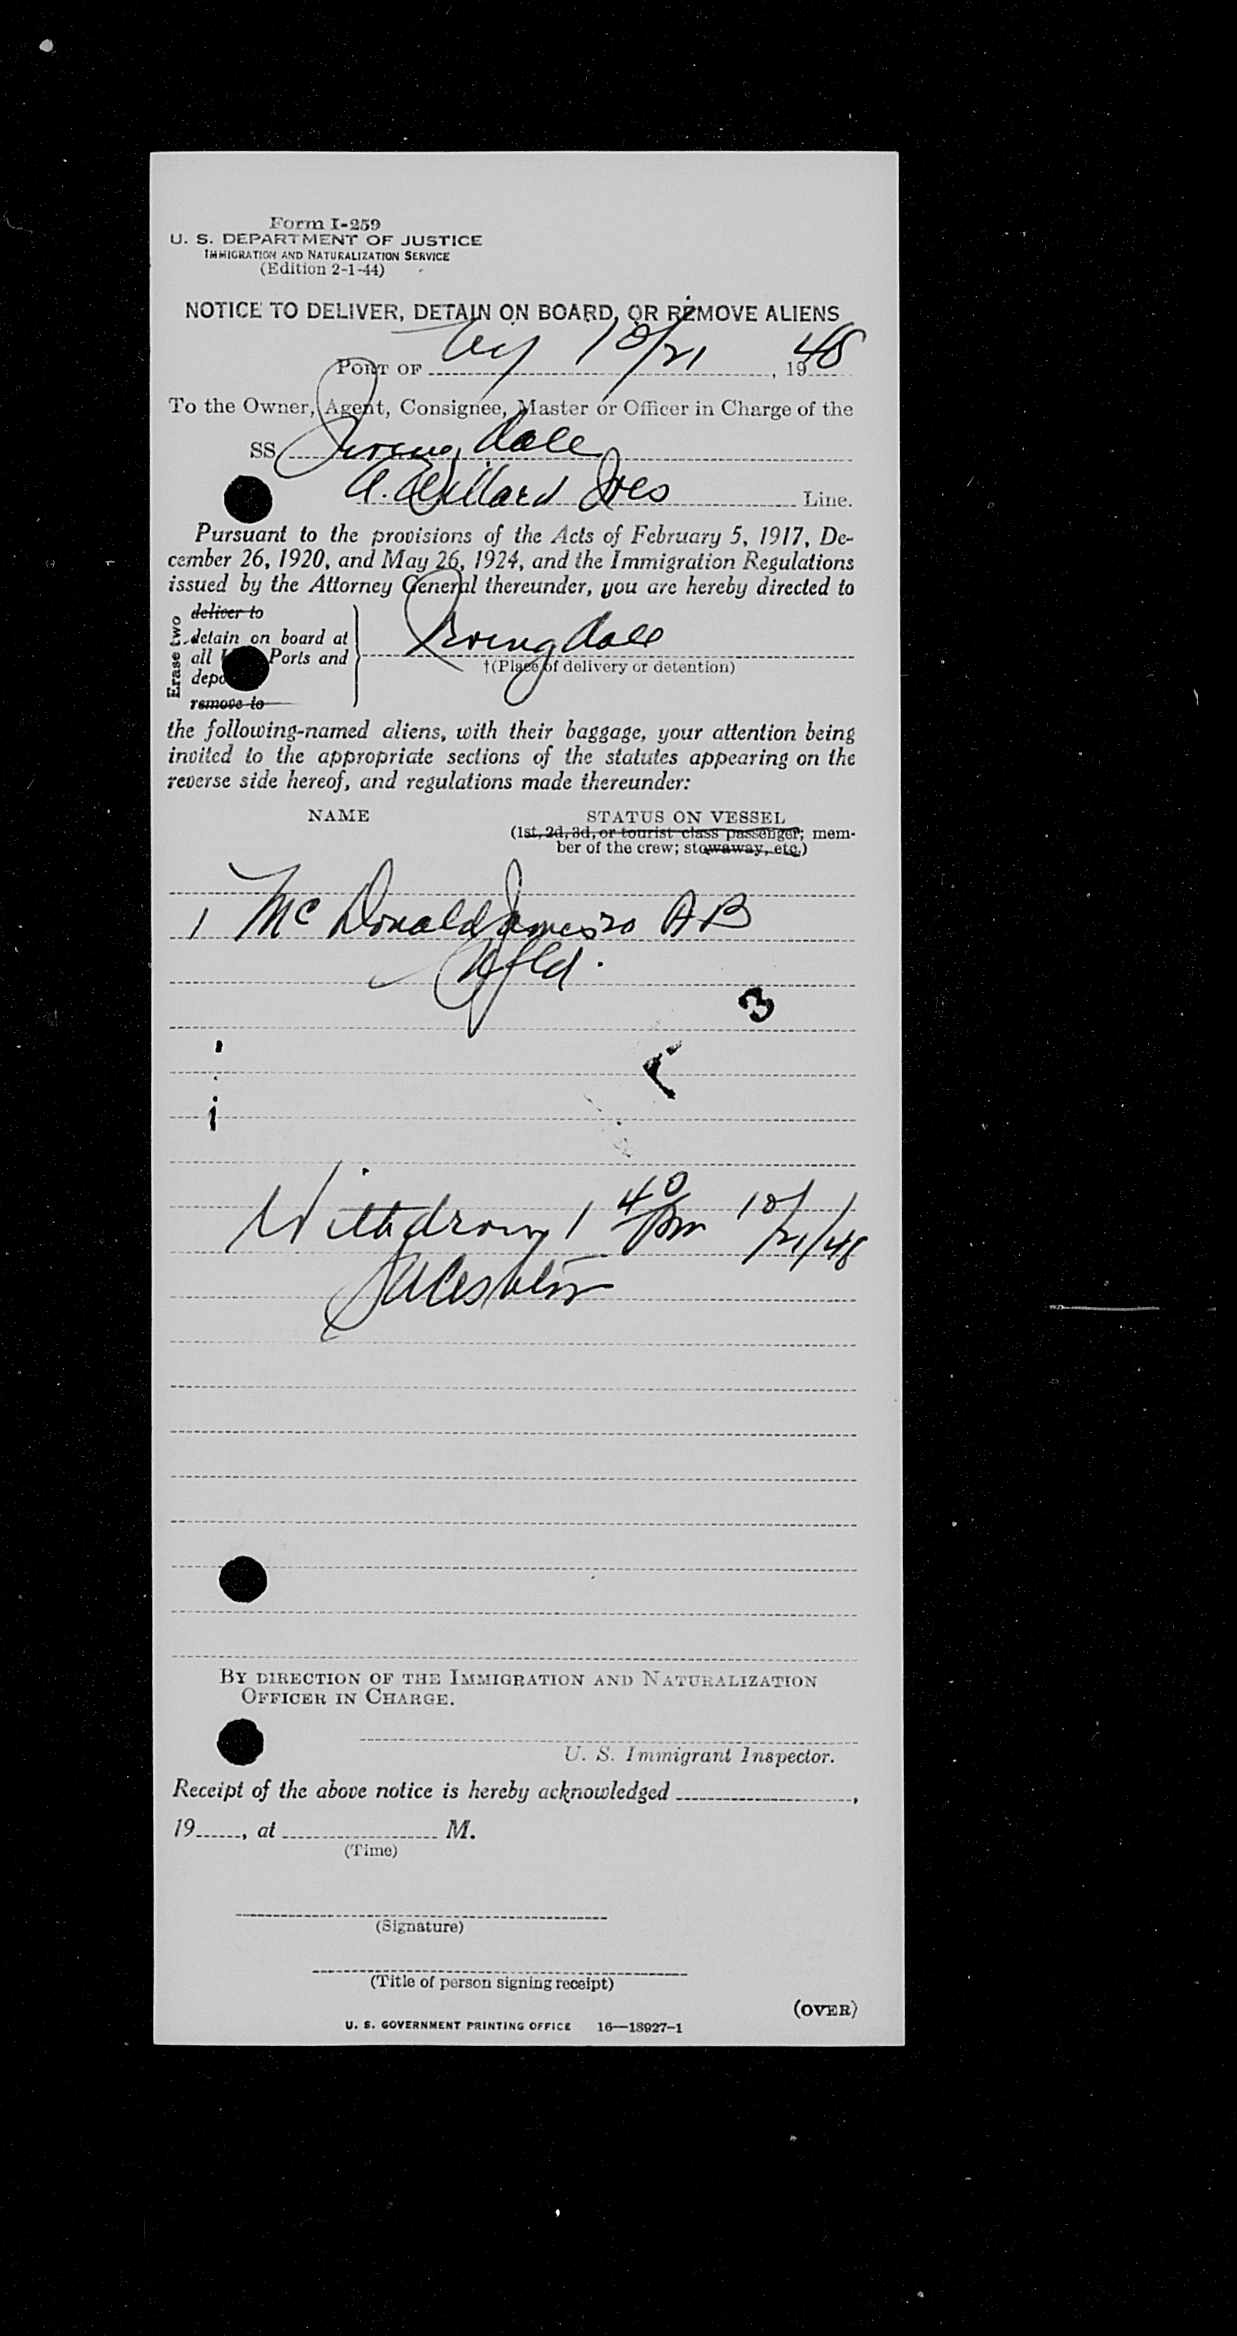 Form I-259
U. S. DEPARTMENT OF JUSTICE
IMMIGRATION AND NATURALIZATION SERVICE
(Edition 2-1-44)
NOTICE TO DELIVER, DETAIN ON BOARD, OR REMOVE ALIENS
PORT OF NY 10/21, 1948
To the Owner, Agent, Consignee, Master or Officer in Charge of the
SS Irvingdale
A. Willard Ives Line.
Pursuant to the provisions of the Acts of February 5, 1917, De-
cember 26, 1920, and May 26, 1924, and the Immigration Regulations
issued by the Attorney General thereunder, you are hereby directed to
Erase two
deliver to
detain on board at
all Ports and
remove to
Irvingdale
†(Place of delivery or detention)
the following-named aliens, with their baggage, your attention being
invited to the appropriate sections of the statutes appearing on the
reverse side hereof, and regulations made thereunder:
NAME STATUS ON VESSEL
(1st, 2d, 3d, or tourist class passenger; mem-
ber of the crew; stowaway, etc.)
1 McDonald James 20 AB
Nfld.
3
Withdrawn 1 40 pm 10/21/48
BY DIRECTION OF THE IMMIGRATION AND NATURALIZATION
OFFICER IN CHARGE.
U. S. Immigrant Inspector.
Receipt of the above notice is hereby acknowledged ,
19 , at M.
(Time)
(Signature)
(Title of person signing receipt)
(OVER)
U. S. GOVERNMENT PRINTING OFFICE 16—18927-1